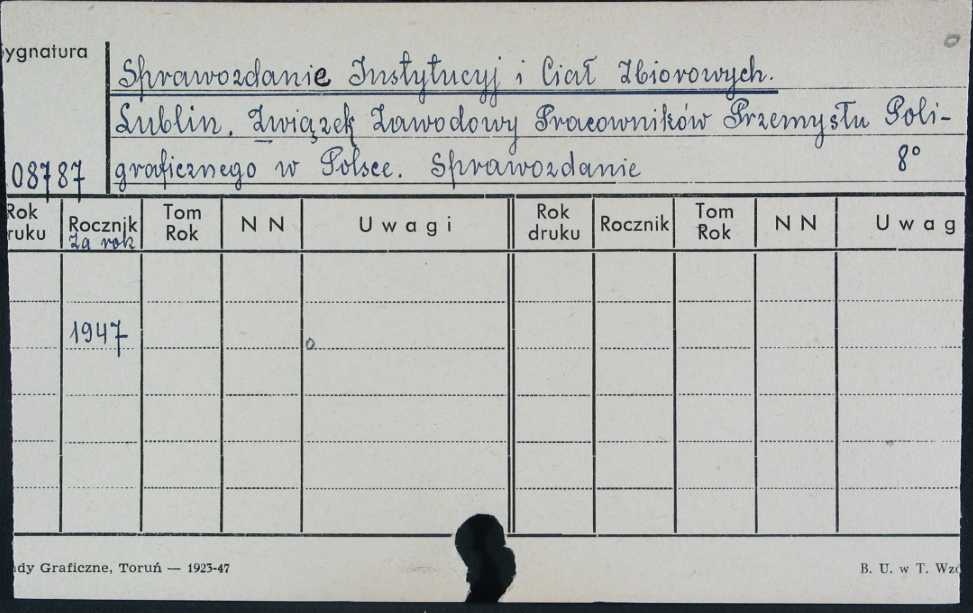 ygnatura
Sprawozdanie Instytucyj i Ciał Zbiorowych.
Lublin. Związek Zawodowy Pracowników Przemysłu Poli-
08787 graficznego w Polsce. Sprawozdanie 8°
Rok ruku Rocznik Tom Rok NN Uwagi Rok druku Rocznik Tom Rok NN Uwag
za rok
1947
dy Graficzne, Toruń — 1923-47 B. U. w T. Wzó